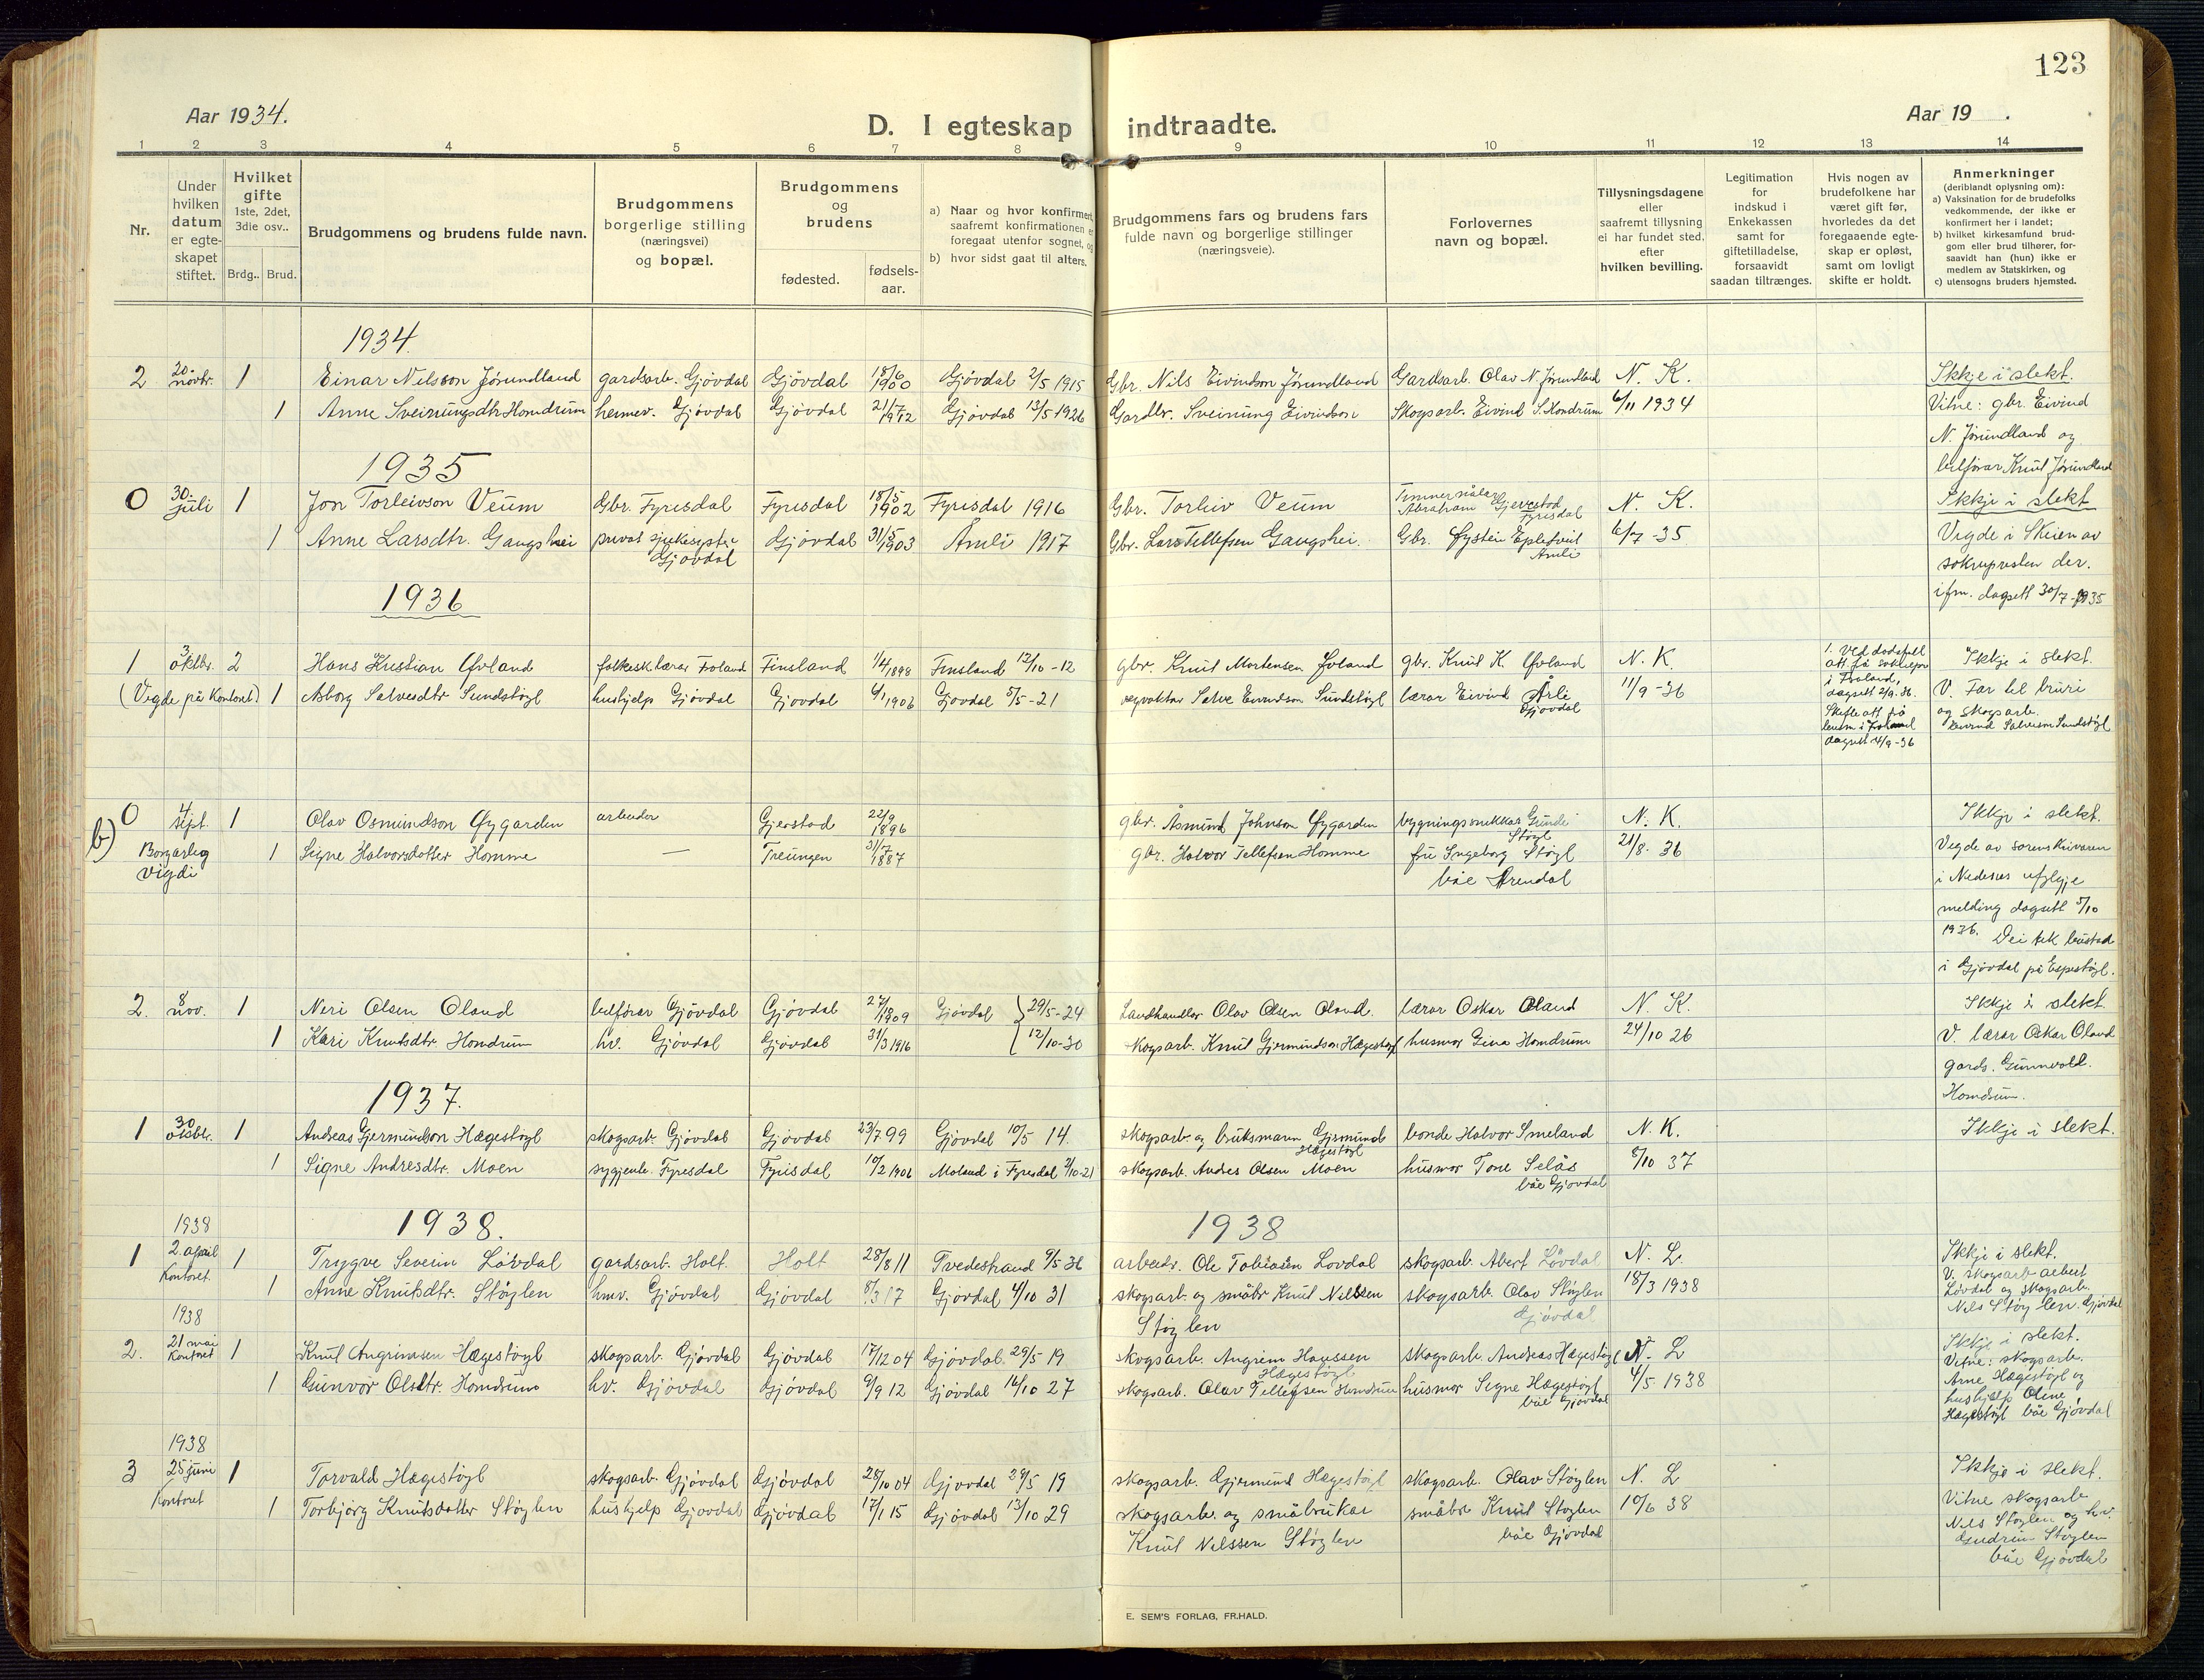 123
Aar 1934.
D. I egteskap indtraadte.
Aar 19 .
1 2 3 4 5 6 7 8 9 10 11 12 13 14
Nr.
Under hvilken datum er egteskapet stiftet.
Hvilket gifte 1ste, 2det, 3die osv..
Brdg.. Brud.
Brudgommens og brudens fulde navn.
Brudgommens borgerlige stilling (næringsvei) og bopæl.
Brudgommens og brudens
fødested.
fødselsaar.
a) Naar og hvor konfirmert, saafremt konfirmationen er foregaat utenfor sognet, og
b) hvor sidst gaat til alters.
Brudgommens fars og brudens fars fulde navn og borgerlige stillinger (næringsveie).
Forlovernes navn og bopæl.
Tillysningsdagene eller saafremt tillysning ei har fundet sted, efter hvilken bevilling.
Legitimation for indskud i Enkekassen samt for giftetilladelse, forsaavidt saadan tiltrænges.
Hvis nogen av brudefolkene har været gift før, hvorledes da det foregaaende egteskap er opløst, samt om lovligt skifte er holdt.
Anmerkninger (deriblandt oplysning om):
a) Vaksination for de brudefolks vedkommende, der ikke er konfirmert her i landet;
b) hvilket kirkesamfund brudgom eller brud tilhører, forsaavidt han (hun) ikke er medlem av Statskirken, og
c) utensogns bruders hjemsted.
1934.
2 20. novbr. 1 Einar Nilsson Jörundland gardsarb. Gjövdal Gjövdal 18/6 1900 Gjövdal 2/5 1915 Gbr. Nils Eivindson Jörundland Gardsarb. Olav N. Jörundland N. K. Ikkje i slekt.
1 Anne Sveinungsdtr Homdrum heimev. Gjövdal Gjövdal 21/7 1912 Gjövdal 13/5 1926 Gardbr. Sveinung Eivindson Skogsarb. Eivind S. Homdrum 6/11 1934 Vitne: gbr. Eivind
N. Jörundland og
bilförar Knut Jörundland
1935
0 30. juli 1 Jon Torleivson Veum Gbr. Fyresdal Fyresdal 18/5 1902 Fyresdal 1916 Gbr. Torleiv Veum Abraham Gjevestad Fyresdal N. K. Ikkje i slekt
1 Anne Larsdtr. Gaugshei privat sjukesyster Gjövdal Gjövdal 31/5 1903 Åmli 1917 Gbr. Lars Tellefsen Gaugshei. Gbr. Øystein Epletveit Åmli 6/7 -35 Vigde i Skien av
soknepresten der.
ifm. dagsett 30/7 - 1935
1936
1 3. oktbr. 2 Hans Kristian Øvland folkesk.lærar Froland Finsland 1/4 1898 Finsland 13/10 -12 gbr. Knut Mortensen Øvland gbr. Knut K. Øvland N. K. 1. Ved dödsfall Ikkje i slekt.
att. få soknepr.
i Froland,
dagsett 2/9.36.
(Vigde på Kontoret) 1 Åsborg Salvesdtr Sundstöyl hushjelp Gjövdal Gjövdal 6/1 1906 Gjövdal 5/5 -21 vegvaktar Salve Eivindson Sundstöyl lærar Eivind Årli Gjövdal 11/9 -36 V. Far til bruri
Skifte att. frå
lensm. i Froland
dagsett 4/9 -36
og skogsarb.
Eivind Salveson Sundstöyl
b) 0 4 sept. 1 Olav Osmundson Øygarden arbeider Gjerstad 22/9 1896 gbr. Åsmund Johnson Øygarden bygningssnikkar Gunde Stöyl N. K. Ikkje i slekt.
Borgarleg vigdi 1 Signe Halvorsdotter Homme — Treungen 31/7 1887 gbr. Halvor Tellefsen Homme fru Ingeborg Stöyl 21/8- 36 Vegde av sorenskrivaren
båe Arendal i Nedenes ifylgje
melding dagsett 5/10
1936. Dei fekk bustad
i Gjövdal på Espestöyl.
2. 8 nov. 1 Neri Olsen Öland bilförar Gjövdal Gjövdal 27/1 1909 Gjövdal 29/5 - 24 Landhandlar Olav Olsen Öland. lærar Oskar Öland N. K. Ikkje i slekt.
1 Kari Knutsdtr. Homdrum hv. Gjövdal Gjövdal 31/3 1916 12/10 -30 skogsarb. Knut Gjermundson Hægestöyl husmor Gina Homdrum 24/10 26 V. lærar Oskar Öland
gards. Gunnvald.
Homdrum.
1937.
1 30 oktbr. 1 Andreas Gjermundson Hægestöyl skogsarb. Gjövdal Gjövdal 23/7 99 Gjövdal 10/5 14. skogsarb. og bruksmann Gjermund Hægestöyl bonde Halvor Smeland N. K. Ikkje i slekt.
1 Signe Andresdtr. Moen sygjente. Fyresdal Fyrisdal 10/2 1906 Moland i Fyresdal 2/10-21 skogsarb. Andres Olsen Moen husmor Tone Selås 8/10 37
båe Gjövdal
1938. 1938
1938
1 2. april Kontoret. 1 Trygve Severin Lövdal gardsarb. Holt. Holt 28/8 11 Tvedestrand 9/5 36 arbeidr. Ole Tobiasen Lovdal skogsarb. Abert Lövdal N. L. Ikkje i slekt.
V. skogsarb albert
1 Anne Knutsdtr. Stöylen hmv. Gjövdal Gjövdal 8/3 17 Gjövdal 4/10 31 skogsarb. og småbr Knut Nilssen Stöylen skogsarb. Olav Stöylen Gjövdal 18/3 1938 Lövdal og skogsarb.
Nils Stöylen. Gjövdal
1938
2. 21 mai Kontoret 1 Knut Angrimsen Hægestöyl skogsarb. Gjövdal Gjövdal 17/12 04 Gjövdal 29/5 19 skogsarb. Angrim Hanssen Hægestöyl skogsarb. Andreas Hægestöyl N. L Ikkje i slekt.
Vitne: skogsarb.
1 Gunvor Olsdtr. Homdrum hv. Gjövdal Gjövdal 9/9 12 Gjövdal 16/10 27 skogsarb. Olav Tellefsen Homdrum husmor Signe Hægestöyl båe Gjövdal 4/5 1938 Arne Hægestöyl og
hushjelp Oline
Hægestöyl båe Gjövdal
1938
3 25 juni Kontoret 1 Torvald Hægestöyl skogsarb. Gjövdal Gjövdal 28/10 04 Gjövdal 29/5 19 skogsarb. Gjermund Hægestöyl skogsarb. Olav Stöylen N. L Ikkje i slekt.
1 Torbjörg Knutsdotter Stöylen hushjelp Gjövdal Gjövdal 17/1 15 Gjövdal 13/10 29 skogsarb. og småbrukar småbr Knut Stöylen 10/6 38 Vitne skogsarb
Knut Nilssen Stöylen båe Gjövdal Nils Stöylen og hv.
Gudrun Stöylen
båe Gjövdal
E. SEM'S FORLAG, FR.HALD.